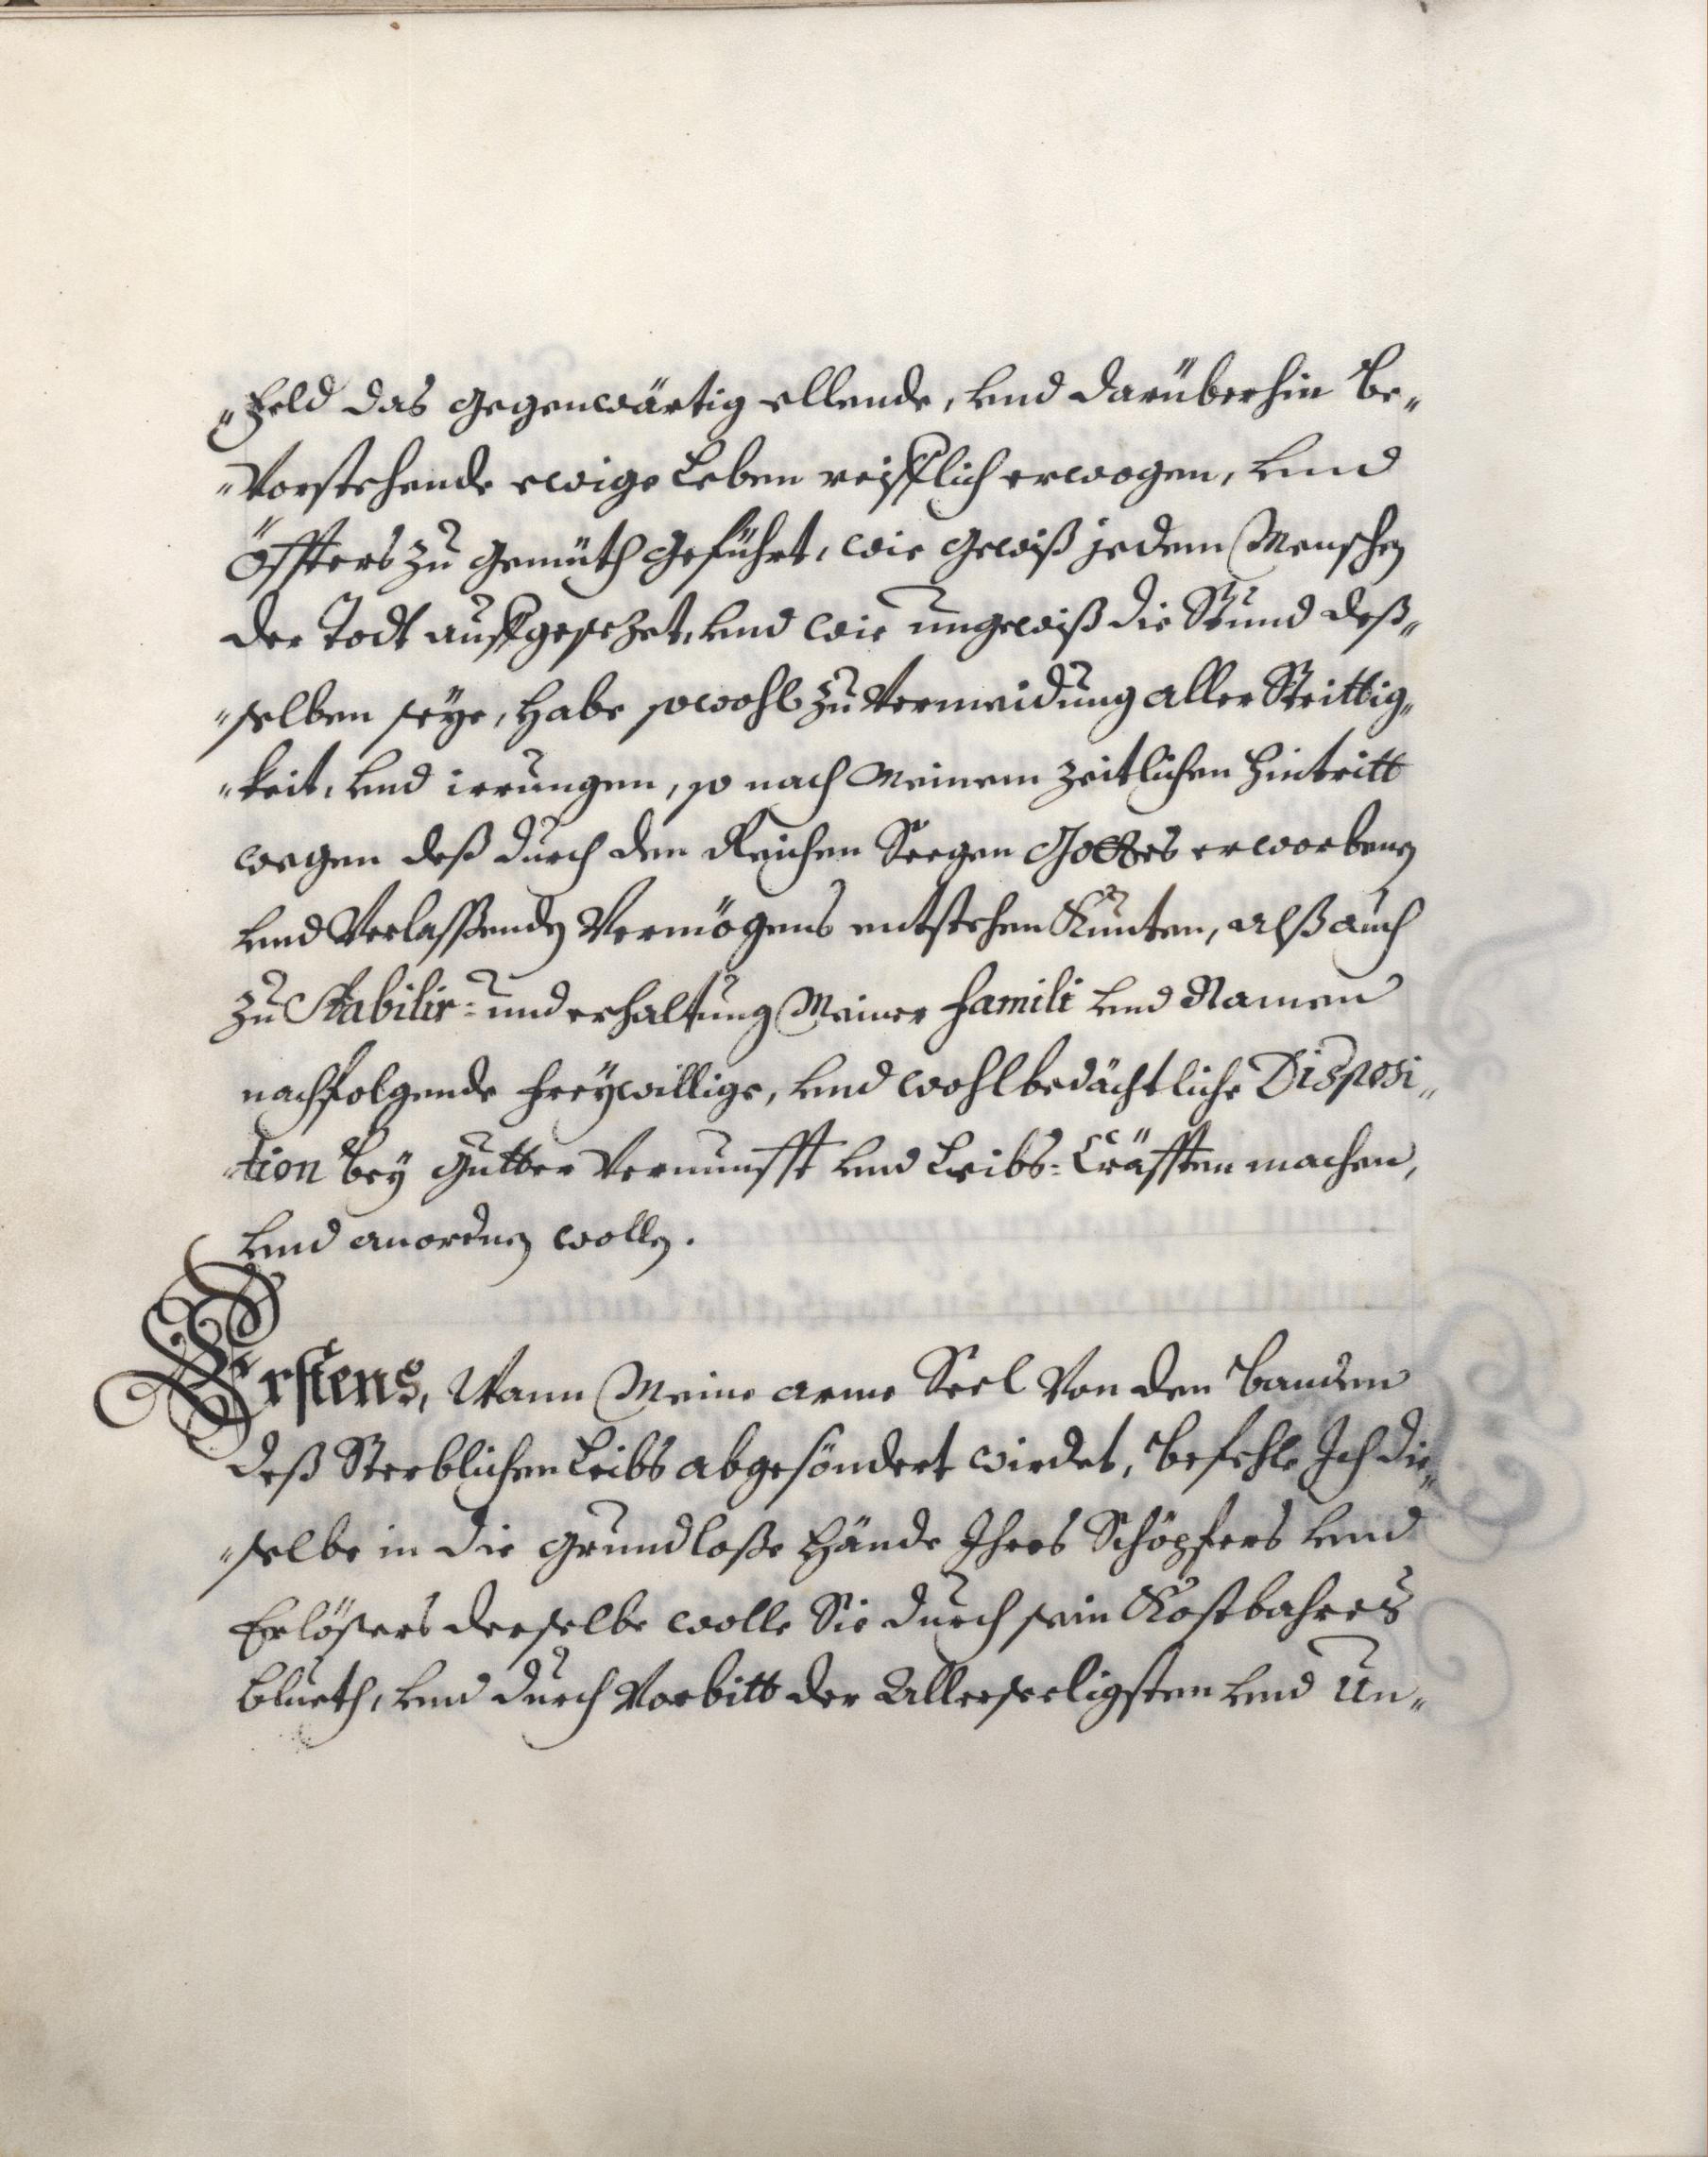 „Feld das gegenwärtig ellende, und darüberhin be„
„Vorstehende ewige Leben reifflich erwogen, und
öffters zu gemüth geführt, wie gewiß jedem Menschen
der Todt auffgesezet, und wie ungewiß die Stund deß„
„selben seye, habe sowohl zu Vermeidung aller Strittig„
„keit, und irrungen, so nach Meinem zeitlichen Hintritt
wegen deß durch den Reichen Seegen Gottes erworbenen
und Verlassenden Vermögens entstehen Kunten, alß auch
zu Stabilir- und erhaltung Meiner Famili und Namen
nachfolgende freywillige, und wohlbedächtliche Disposi„
tion bey gutter Vernunfft und Leibs-Cräfften machen,
und anordnen wollen.
Erstens, Wann Meine arme Seel Von den banden
deß Sterblichen Leibs abgesöndert wirdet, befehle Ich die„
„selbe in die grundlose Hände Ihres Schöpfers und
Erlösers derselbe wolle Sie durch sein Kostbahres
blueth, und durch Vorbitt der Allerseeligsten und Un„